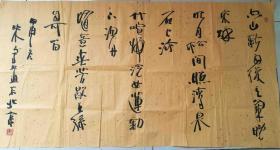 空山新雨後天氣晚
来秋
明月松间照清泉
石上流
竹喧歸浣女蓮動
下渔舟
随意春芳歇王孫
自可留